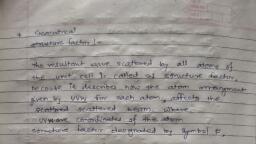 * Geometrical
structure factor :-
the resultant wave scattered by all atoms of
the unit cell is called as structure factor,
because it describes how the atom arrangement
given by UVW for each atom, affects the
scattered beam, where
UVW are coordinates of the atom
structure factor designated by symbol F,